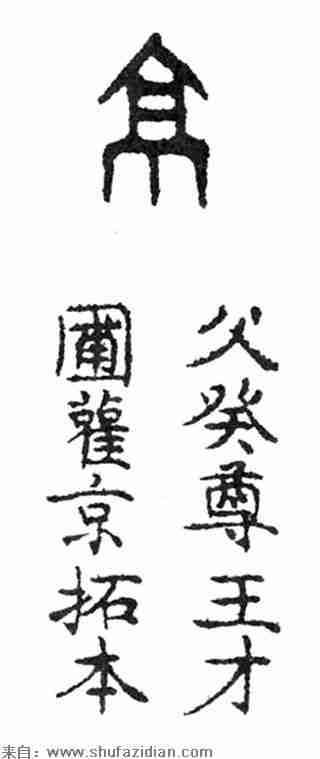 京
父癸尊王才
圃雚京拓本
来自：www.shufazidian.com